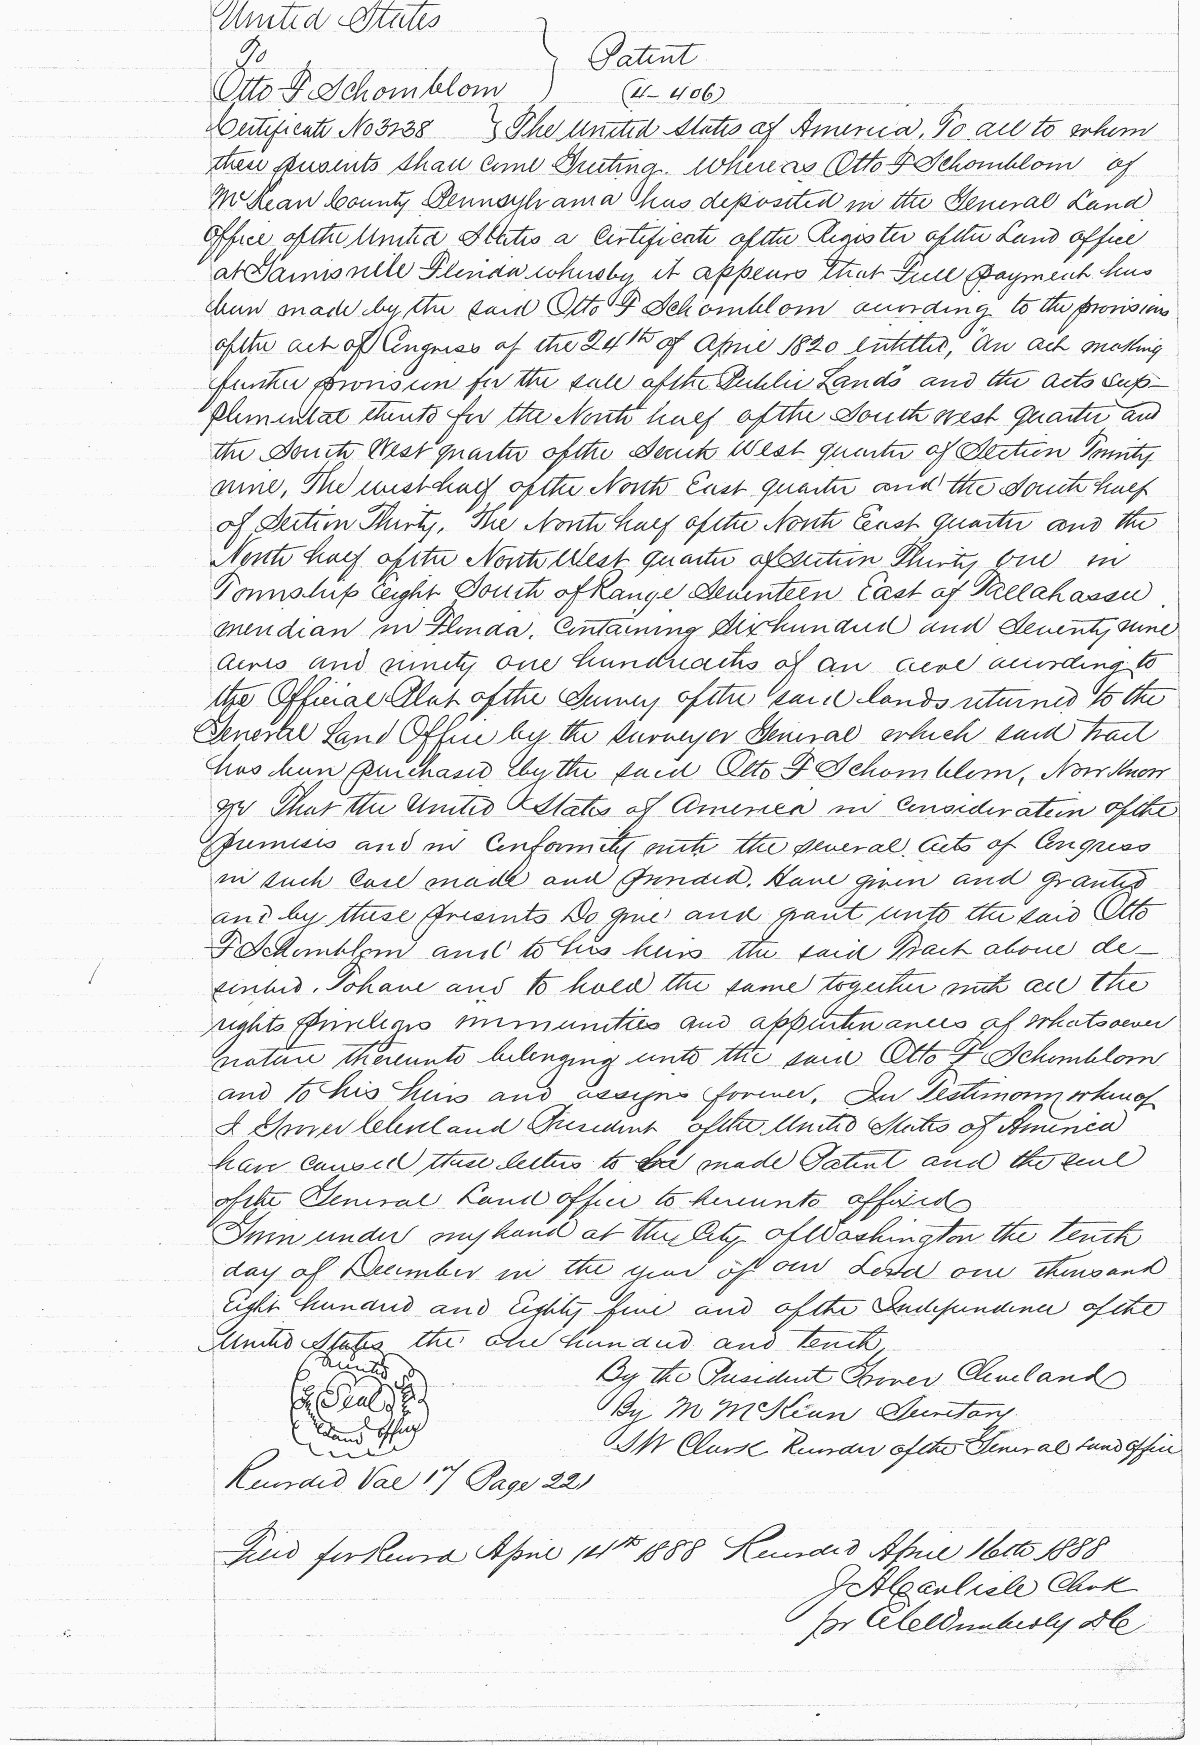 United States
To
Otto F Schomblom
Patent
(4-406)
Certificate No 3238 } The United States of America, To all to whom
these presents shall come Greeting. Whereas Otto F Schomblom of
McKean County Pennsylvania has deposited in the General Land
Office of the United States a Certificate of the Register of the Land office
at Gainisville Florida whereby it appears that Full payment has
been made by the said Otto F Schomblom according to the provisions
of the act of Congress of the 24th of April 1820 entitled, "An act making
further provision for the sale of the Public Lands" and the acts sup-
plemental thereto for the North half of the South west quarter and
the South West quarter of the South West quarter of Section Twenty
nine, The west half of the North East quarter and the South half
of Section Thirty, The North half of the North East quarter and the
North half of the North West quarter of Section Thirty one in
Township Eight South of Range Seventeen East of Tallahassee
meridian in Florida, Containing Six hundred and Seventy nine
acres and ninety one hundredths of an acre according to
the Official Plat of the Survey of the said lands returned to the
General Land Office by the Surveyor General which said tract
has been purchased by the said Otto F Schomblom, Now Know
ye That the United States of America in Consideration of the
premises and in Conformity with the several Acts of Congress
in such Case made and provided, Have given and granted
and by these presents Do give and grant unto the said Otto
F Schomblom and to his heirs the said Tract above de-
scribed. To have and to hold the same together with all the
rights privileges immunities and appurtenances of whatsoever
nature thereunto belonging unto the said Otto F Schomblom
and to his heirs and assigns forever, In Testimony whereof
I Grover Cleveland President of the United States of America
have caused these letters to be made Patent and the seal
of the General Land office to hereunto affixed
Given under my hand at the City of Washington the tenth
day of December in the year of our Lord one thousand
Eight hundred and Eighty five and of the Independence of the
United States the one hundred and tenth,
United
Seal
Land office
By the President Grover Cleveland
By M McKean Secretary
S W Clark Recorder of the General Land office
Recorded Vol 17 Page 221
Filed for Record April 14th 1888 Recorded April 16th 1888
J A Carlisle Clerk
pr Wimberly D C